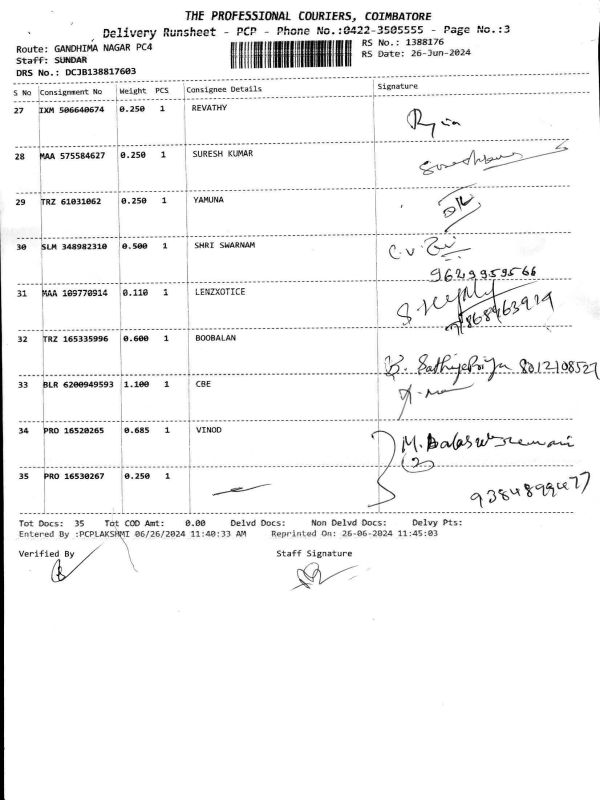 THE PROFESSIONAL COURIERS, COIMBATORE
Delivery Runsheet - PCP - Phone No.:0422-3505555 - Page No.:3
Route: GANDHIMA NAGAR PC4
RS No.: 1388176
Staff: SUNDAR
RS Date: 26-Jun-2024
DRS No.: DCJB138817603
S No Consignment No Weight PCS Consignee Details Signature
27 IXM 506640674 0.250 1 REVATHY
28 MAA 575584627 0.250 1 SURESH KUMAR
29 TRZ 61031062 0.250 1 YAMUNA
30 SLM 348982310 0.500 1 SHRI SWARNAM
31 MAA 109770914 0.110 1 LENZXOTICE
32 TRZ 165335996 0.600 1 BOOBALAN
33 BLR 6200949593 1.100 1 CBE
34 PRO 16520265 0.685 1 VINOD
35 PRO 16530267 0.250 1
9384899477
Tot Docs: 35 Tot COD Amt: 0.00 Delvd Docs: Non Delvd Docs: Delvy Pts:
Entered By :PCPLAKSHMI 06/26/2024 11:40:33 AM Reprinted On: 26-06-2024 11:45:03
Verified By Staff Signature